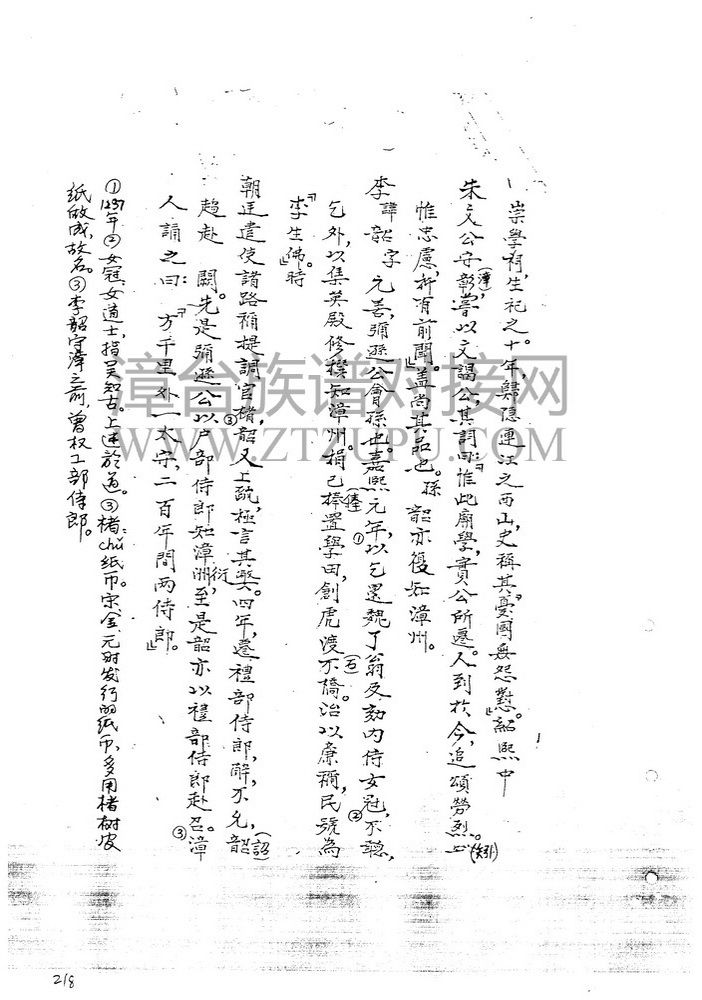 崇學有生祀之。十年,歸隱連江之西山,史稱其『憂國無怨懟』。紹熙中
朱文公守彰(漳),嘗以文謁公,其詞曰:『惟此廟學,實公所遷。人到於今,追頌勞烈。(矧)
惟忠慮,析有前聞』。蓋尚其品也。孫韶亦復知漳州。
李諱韶字元善,彌遜公曾孫也。嘉熙元年①,以乞還魏了翁及劾內侍女冠②,不聽,
乞外,以集英殿修撰知漳州。捐己棒(俸)置學田,創虎渡不(石)橋。治以廉稱,民號為
『李生佛』。時
朝廷遣使諸路稱提調官楮③,韶又上疏,極言其弊。四年,遷禮部侍郎,辭不允,韶(詔)
趨赴 闕。先是彌遜公以户部侍郎知漳州衍,至是韶亦以禮部侍郎赴召③。漳
人誦之曰:『方千里外一太守,二百年間两侍郎』。
①1237年②女冠:女道士,指吴知古。上迷於道。③楮:chǔ纸币。宋、金、元时发行的纸币,多用楮树皮
纸做成,故名。③李韶守漳之前,曾权工部侍郎。
漳台族谱对接网
WWW.ZTZUPU.COM
218